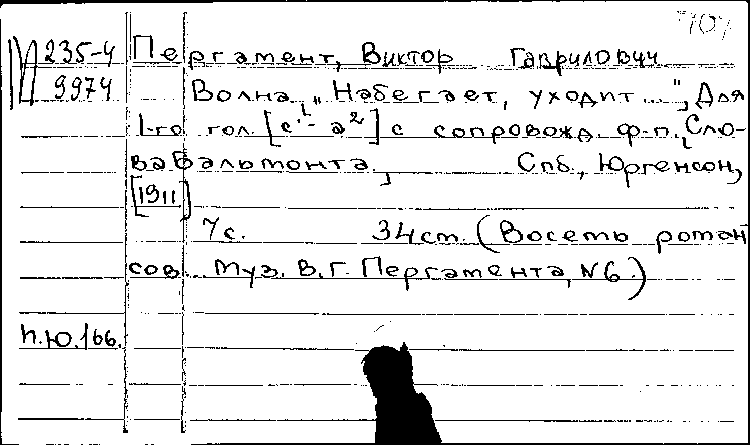 707
М 235-4 Пергамент, Виктор Гаврилович
9974 Волна „Набегает, уходит...", Для
1-го гол. [c¹-a²] с сопровожд. ф-п., Сло-
ва Бальмонта, Спб., Юргенсон,
[1911]
7с. 34 ст. (Восемь роман
сов муз. В.Г. Пергамента, N6.)
п.ю.166.